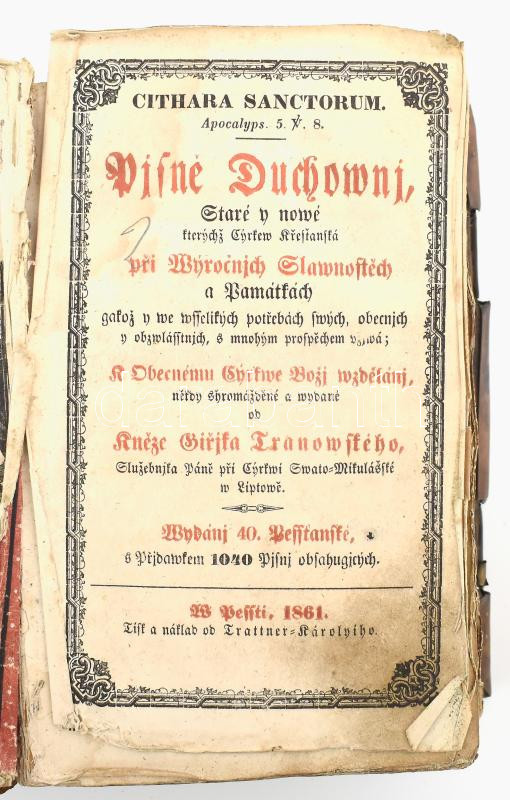 CITHARA SANCTORUM.
Apocalyps. 5. V. 8.
Pjsně Duchownj,
Staré y nowé
kterýchž Cýrkew Křesťanská
při Wýročnjch Slawnostěch
a Památkách
gakož y we wsselikých potřebách swých, obecnjch
y obzwlásstnjch, s mnohým prospěchem
K Obecnému Cýrkwe Božj wzdělánj,
někdy shromážděné a wydané
od
Kněze Giřjka Tranowského,
Služebnjka Páně při Cýrkwi Swato-Mikulášské
w Liptowě.
Wydánj 40. Pessťanské,
s Přjdawkem 1040 Pjsnj obsahugjcých.
W Pessti, 1861.
Tisk a náklad od Trattner-Károlyiho.